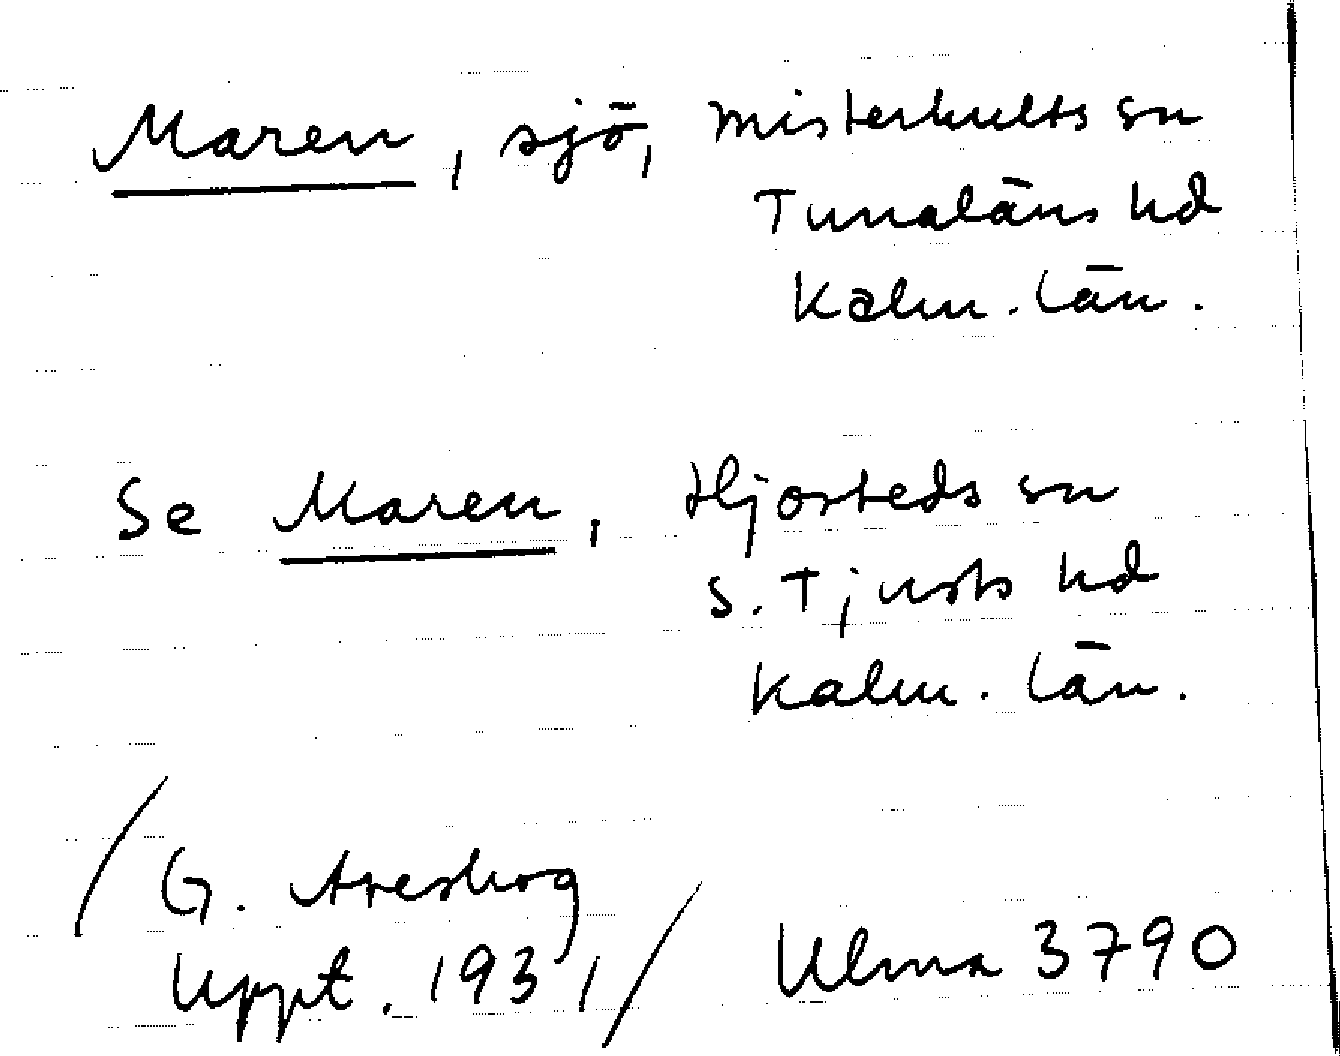 Maren, sjö, Misterhults sn
Tunaläns hd
Kalm. län.
Se Maren, Hjorteds sn
S. Tjusts hd
Kalm. län.
/G. Areskog
Uppt. 1931/ Ulma 3790